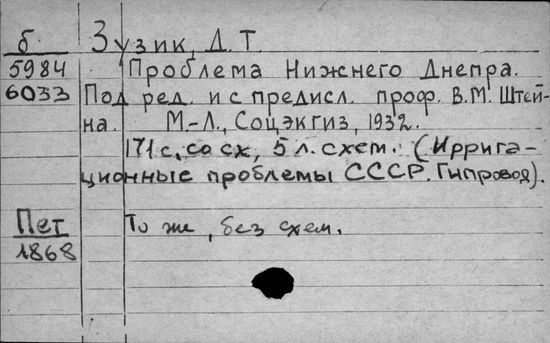 б. Зузик, Д. Т.
5984 Проблема Нижнего Днепра.
6033 Под ред. и с предисл. проф. В.М. Штей-
на. М.-Л., Соцэкгиз, 1932.
171 с, со сх, 5 л. схем. (Иррига-
ционные проблемы СССР. Гипровод).
Пет То же, без схем.
1868